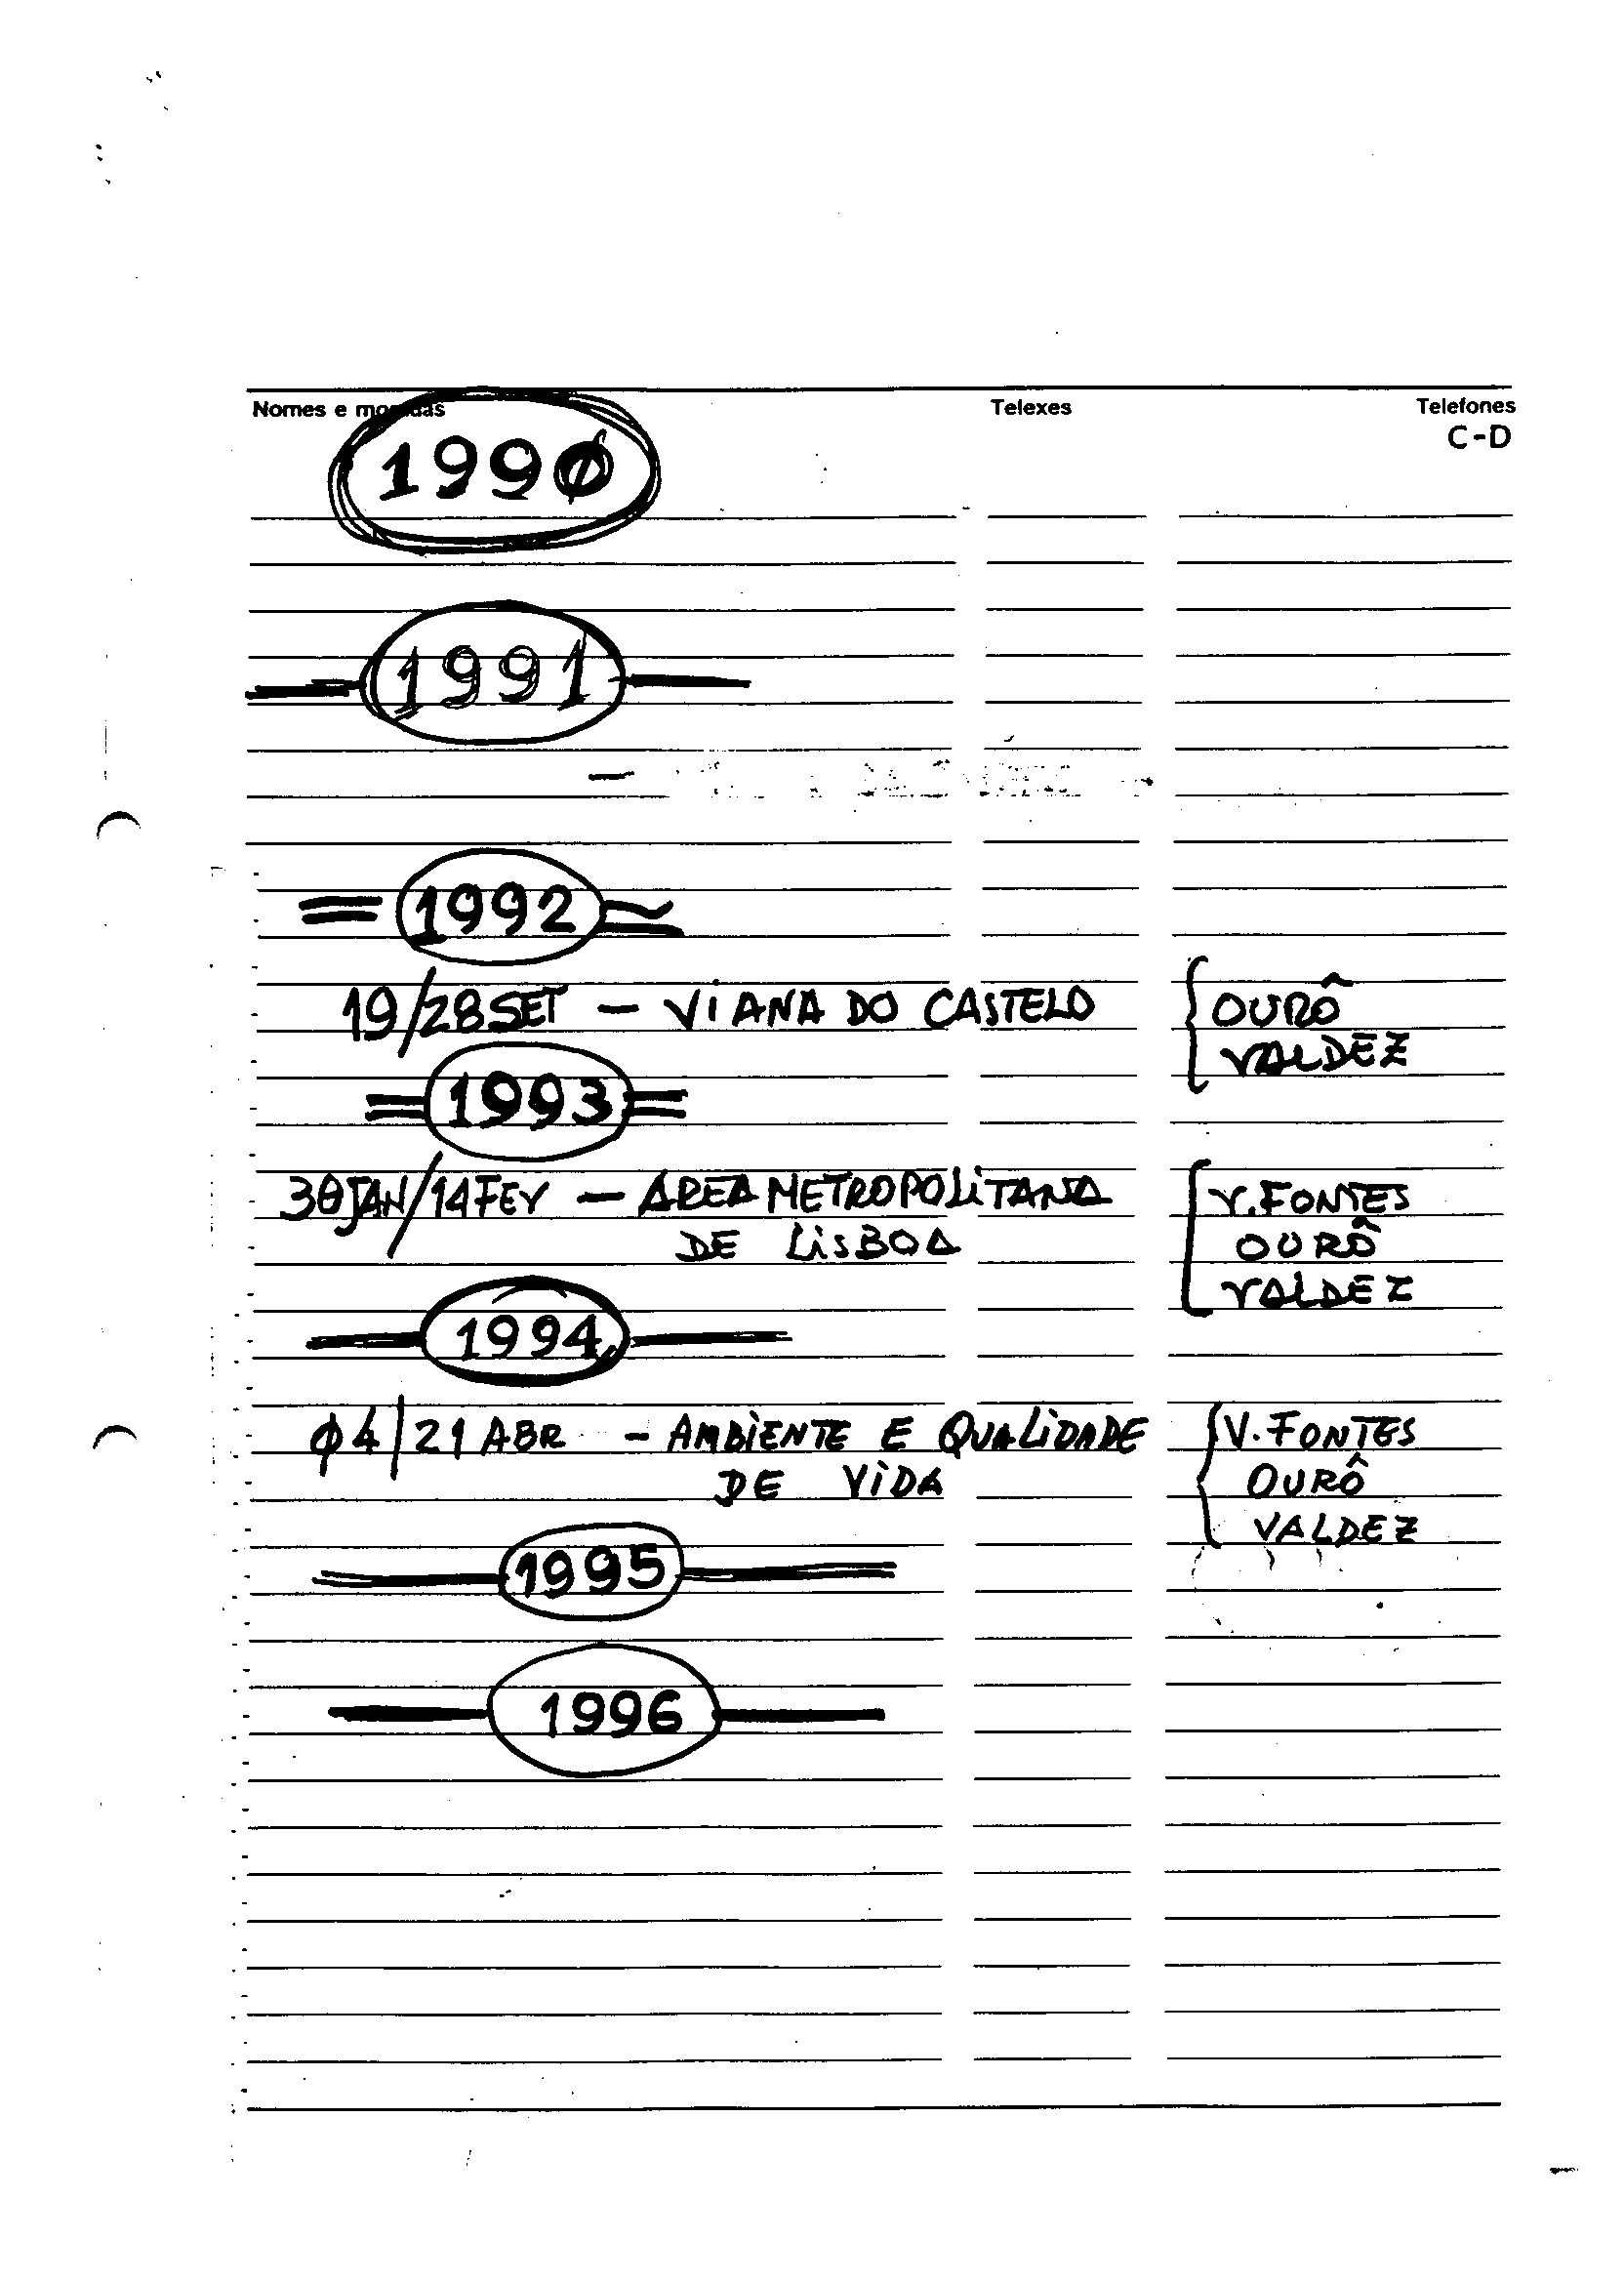 Nomes e moradas Telexes Telefones
C-D
1990
1991
1992
19/28 SET - VIANA DO CASTELO OURÔ
VALDEZ
1993
30 JAN/14 FEV - AREA METROPOLITANA V. FONTES
DE LISBOA OURÔ
VALDEZ
1994
04/21 ABR - AMBIENTE E QUALIDADE V. FONTES
DE VIDA OURÔ
VALDEZ
1995
1996